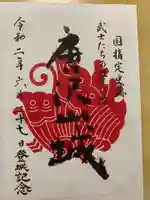 国指定史跡
武士たちの
唐沢山城
令和二年六月二十七日登城記念